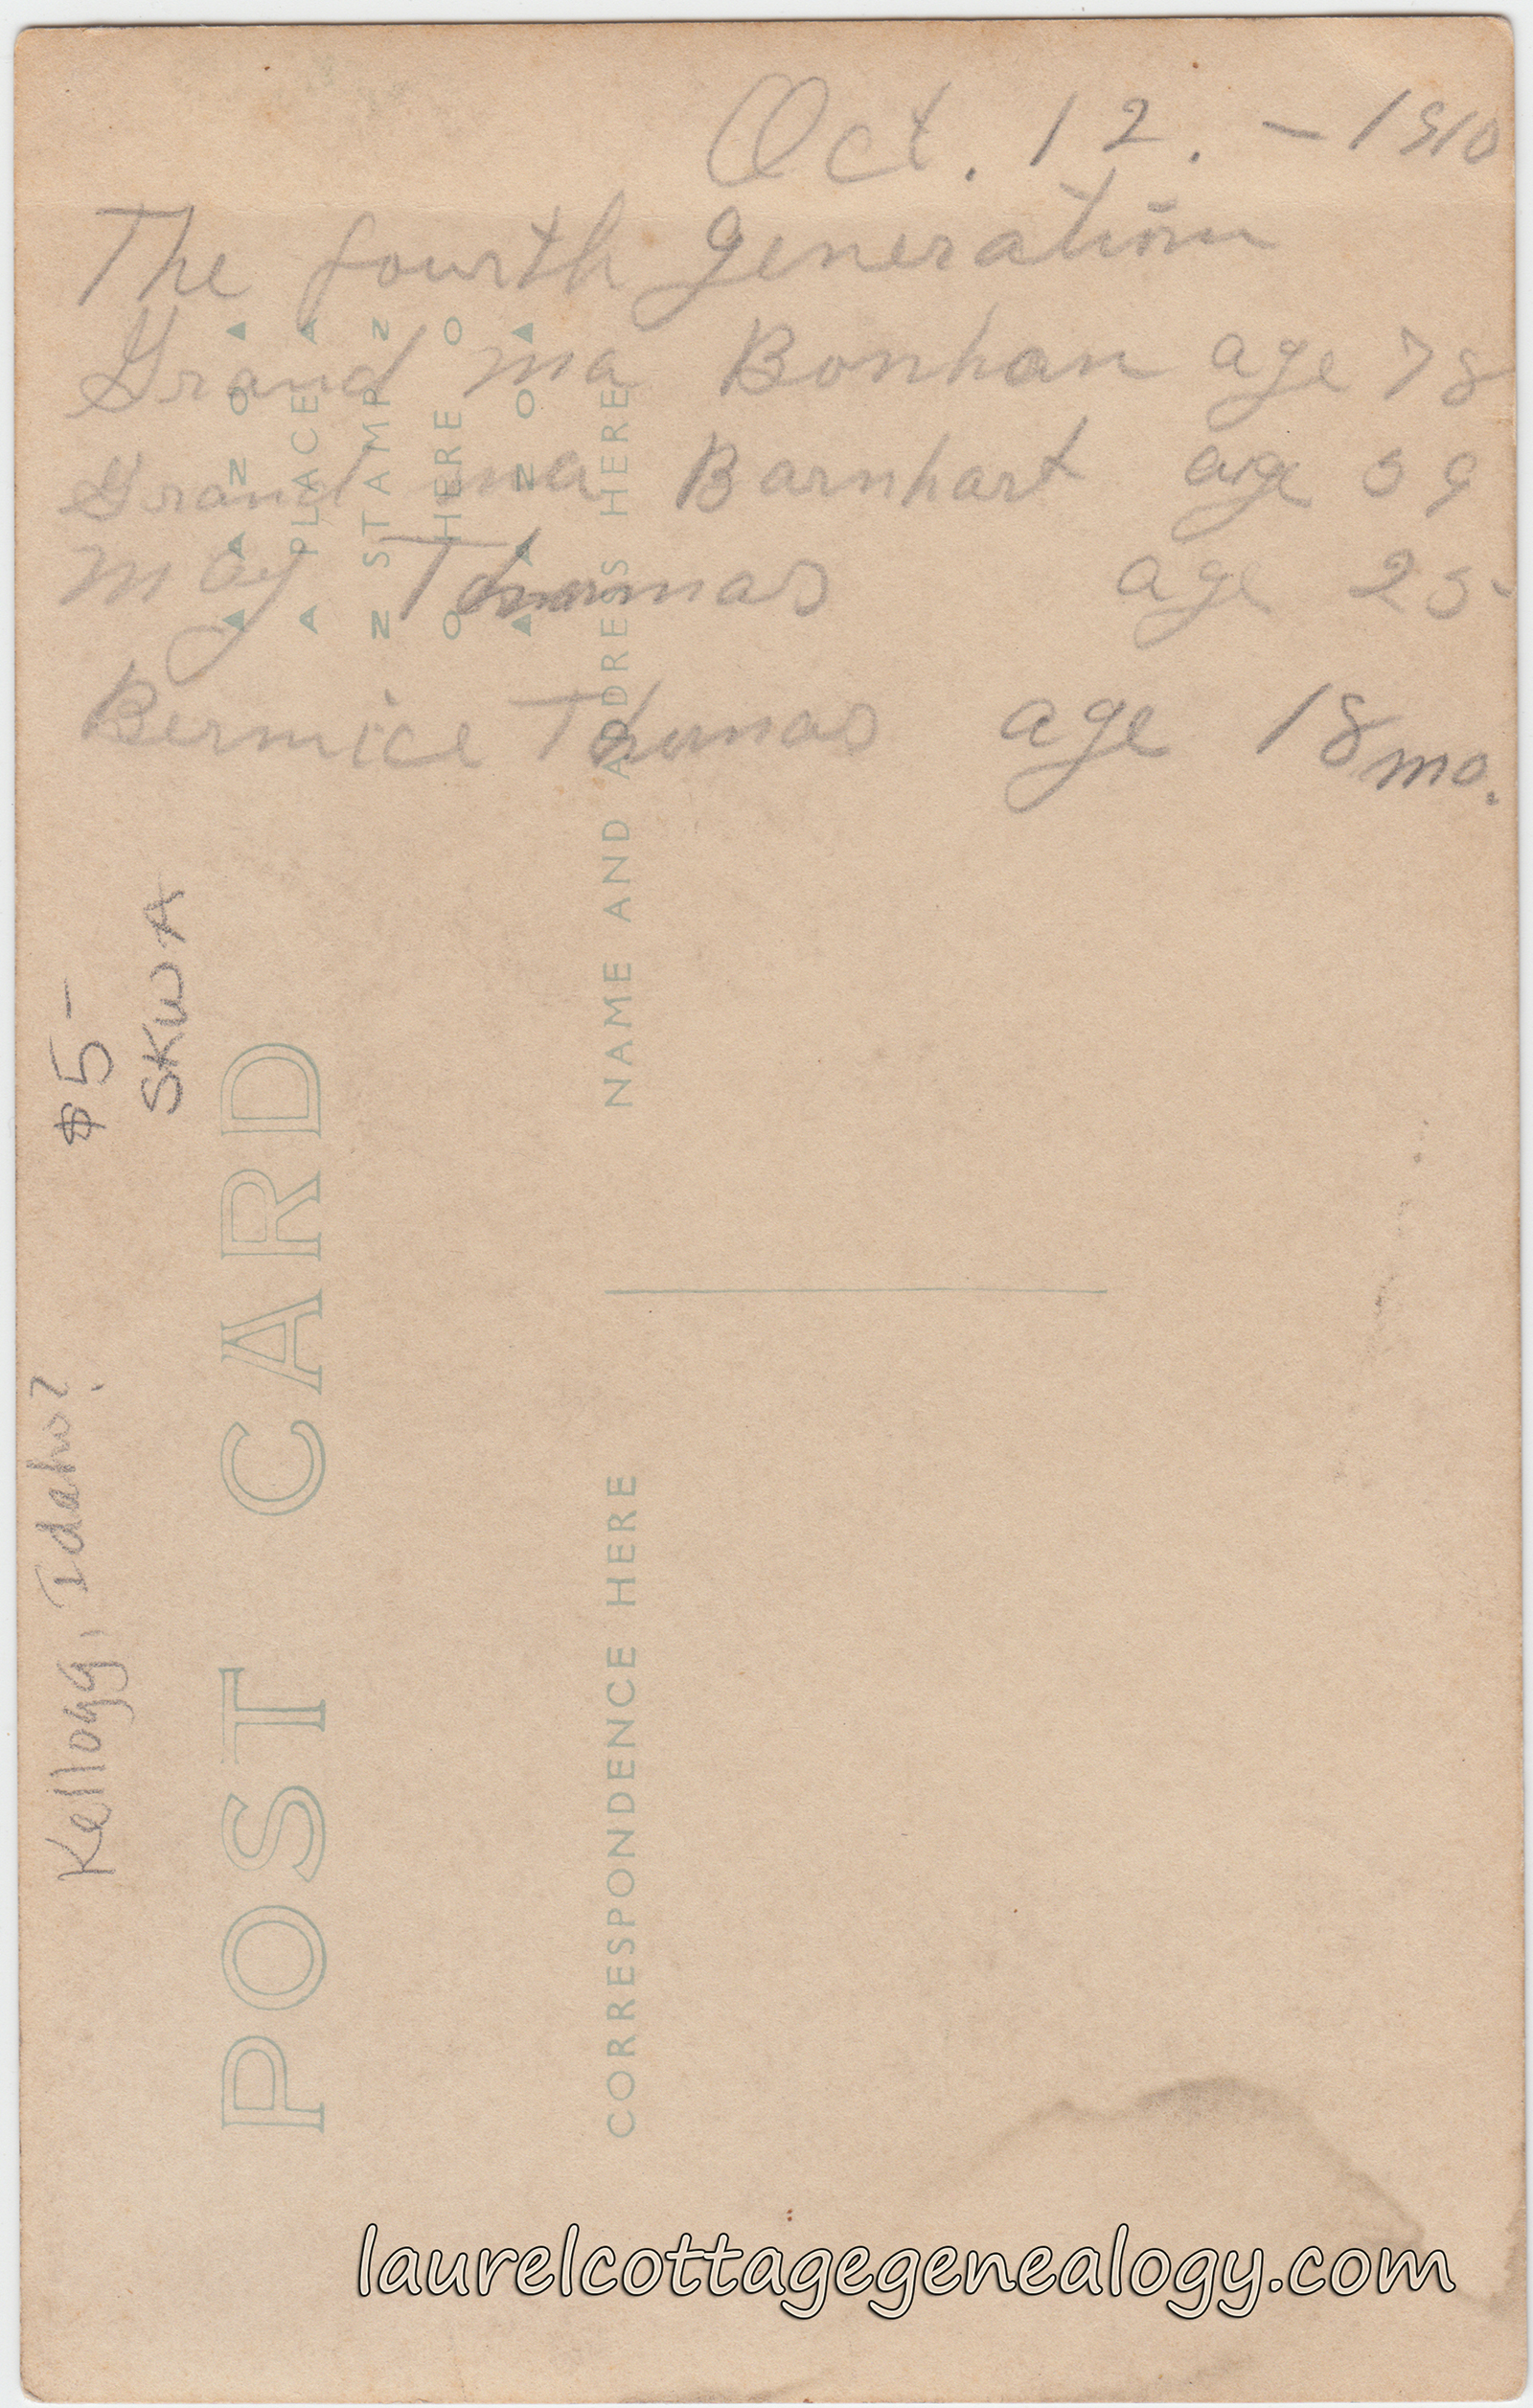 Oct. 12. - 1910
The fourth generation
Grand ma Bonhan age 78
Grand ma Barnhart age 59
May Thomas age 25-
Bernice Thomas age 18 mo.
$5-
SKWA
Kellogg, Idaho?
POST CARD
AZOA
PLACE
STAMP
HERE
AZOA
NAME AND ADDRESS HERE
CORRESPONDENCE HERE
laurelcottagegenealogy.com